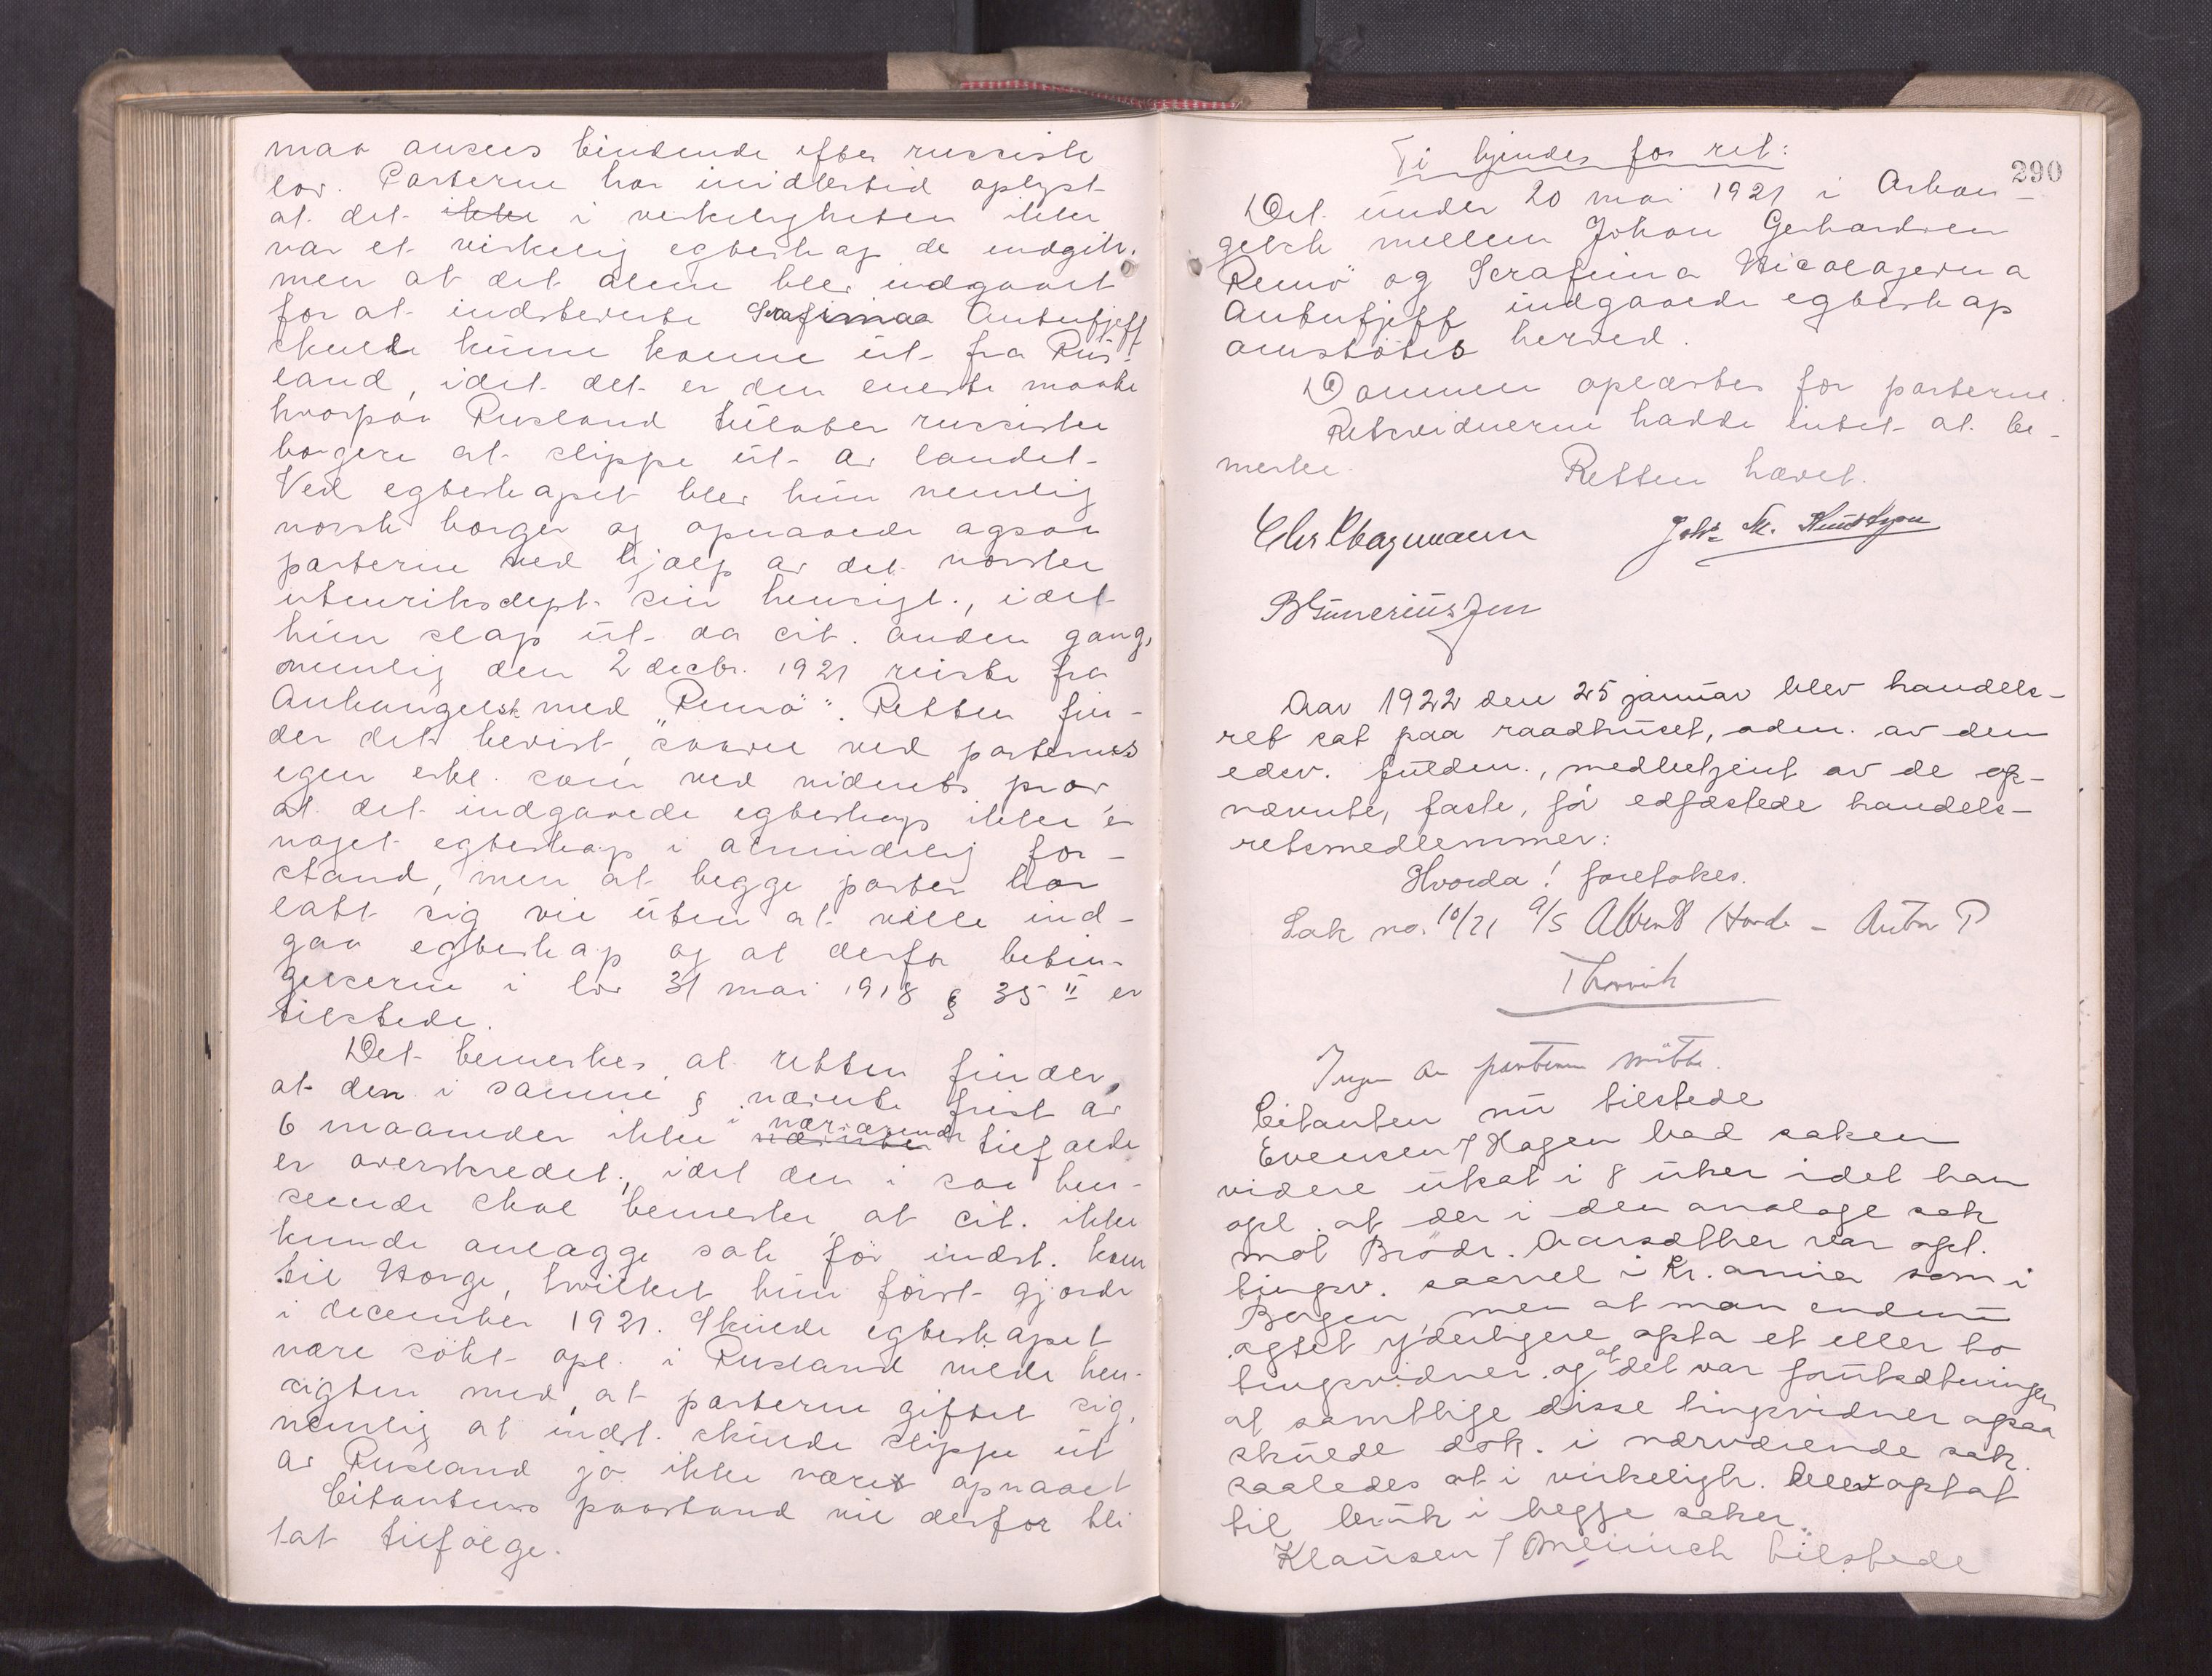 maa ansees bindende efter russiske
lov. Parterne har imidlertid oplyst
at det ikke i virkeligheten ikke
var et virkelig egteskap de indgik,
men at det alene blev indgaaet
for at indstevnte Serafimaa Antufjeff
skulde kunne komme ut fra Rus-
land, idet det er den eneste maate
hvorpaa Rusland tillater russiske
borgere at slippe ut av landet.
Ved egteskapet blev hun nemlig
norsk borger og opnaaede ogsaa
parterne ved hjælp av det norske
utenriksdept. sin hensigt, idet
hun slap ut da cit. anden gang,
nemlig den 2 decbr. 1921 reiste fra
Arkangelsk med "Remö". Retten fin-
der det bevist, saavel ved parternes
egen erkl. som ved vidnets prov,
at det indgaaede egteskap ikke er
noget egteskap i almindelig for-
stand, men at begge parter har
latt sig vie uten at ville ind-
gaa egteskap og at derfor betin-
gelserne i lov 31 mai 1918 § 35 II er
tilstede.
Det bemerkes at retten finder,
at den i samme § nævnte frist av
6 maaneder ikke i nærværende nævnte tilfælde
er overskredet, idet den i saa hen-
seende skal bemerke at cit. ikke
kunde anlægge sak før indst. kom
til Norge, hvilket hun først gjorde
i december 1921. Skulde egteskapet
være søkt opl. i Rusland vilde hen-
sigten med, at parterne giftet sig,
nemlig at indst. skulde slippe ut
av Rusland jo ikke været opnaaet
Citantens paastand vil derfor bli
tat tilfølge.
290
Ti kjendes for ret:
Det under 20 mai 1921 i Arkan-
gelsk mellem Johan Gerhardsen
Remö og Serafima Nicolajevna
Antufjeff indgaaede egteskap
omstøtes herved.
Dommen oplæstes for parterne.
Retsvidnerne hadde intet at be-
merke. Retten hævet.
Chr. Johs. M. Knutzen
Aar 1922 den 25 januar blev handels-
ret sat paa raadhuset, adm. av den
edsv. fuldm., medbetjent av de op-
nævnte, faste, før edfæstede handels-
retsmedlemmer:
Hvorda! foretokes.
Sak no. 10/21 A/S Albert Horde - Anton P
Thorvik
Ingen av parterne mötte.
Citanten nu tilstede
Evensen / Hagen bad saken
videre utsat i 8 uker idet han
opl. at der i den analoge sak
mot Brödr. Aarsæther var opt.
tingsv. saavel i Kr.ania som i
Bergen, men at man endnu
agtet yderligere opta et eller to
tingsvidner og at det var forutsætningen
at samtlige disse tingsvidner ogsaa
skulde dok. i nærværende sak.
saaledes at i virkeligh. blev optat
til bruk i begge saker.
Klausen / Meinich tilstede